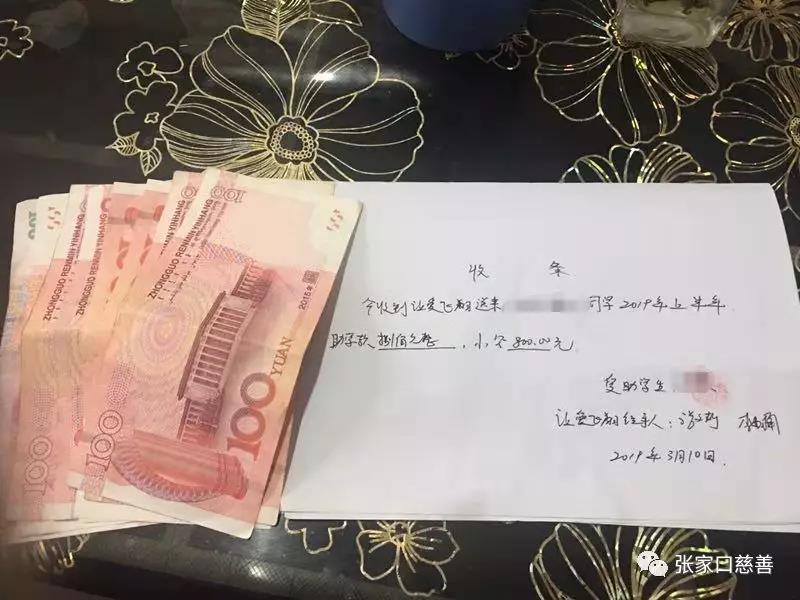 100
ZHONGGUO RENMIN YINHANG
100
ZHONGGUO RENMIN YINHANG
100
ZHONGGUO RENMIN YINHANG
100
2015年
100 YUAN
收 条
今收到让爱飞翔送来 同学2019年上半年
助学款捌佰元整,小写800.00元
受助学生:
让爱飞翔经手人:
2019年3月10日.
张家口慈善